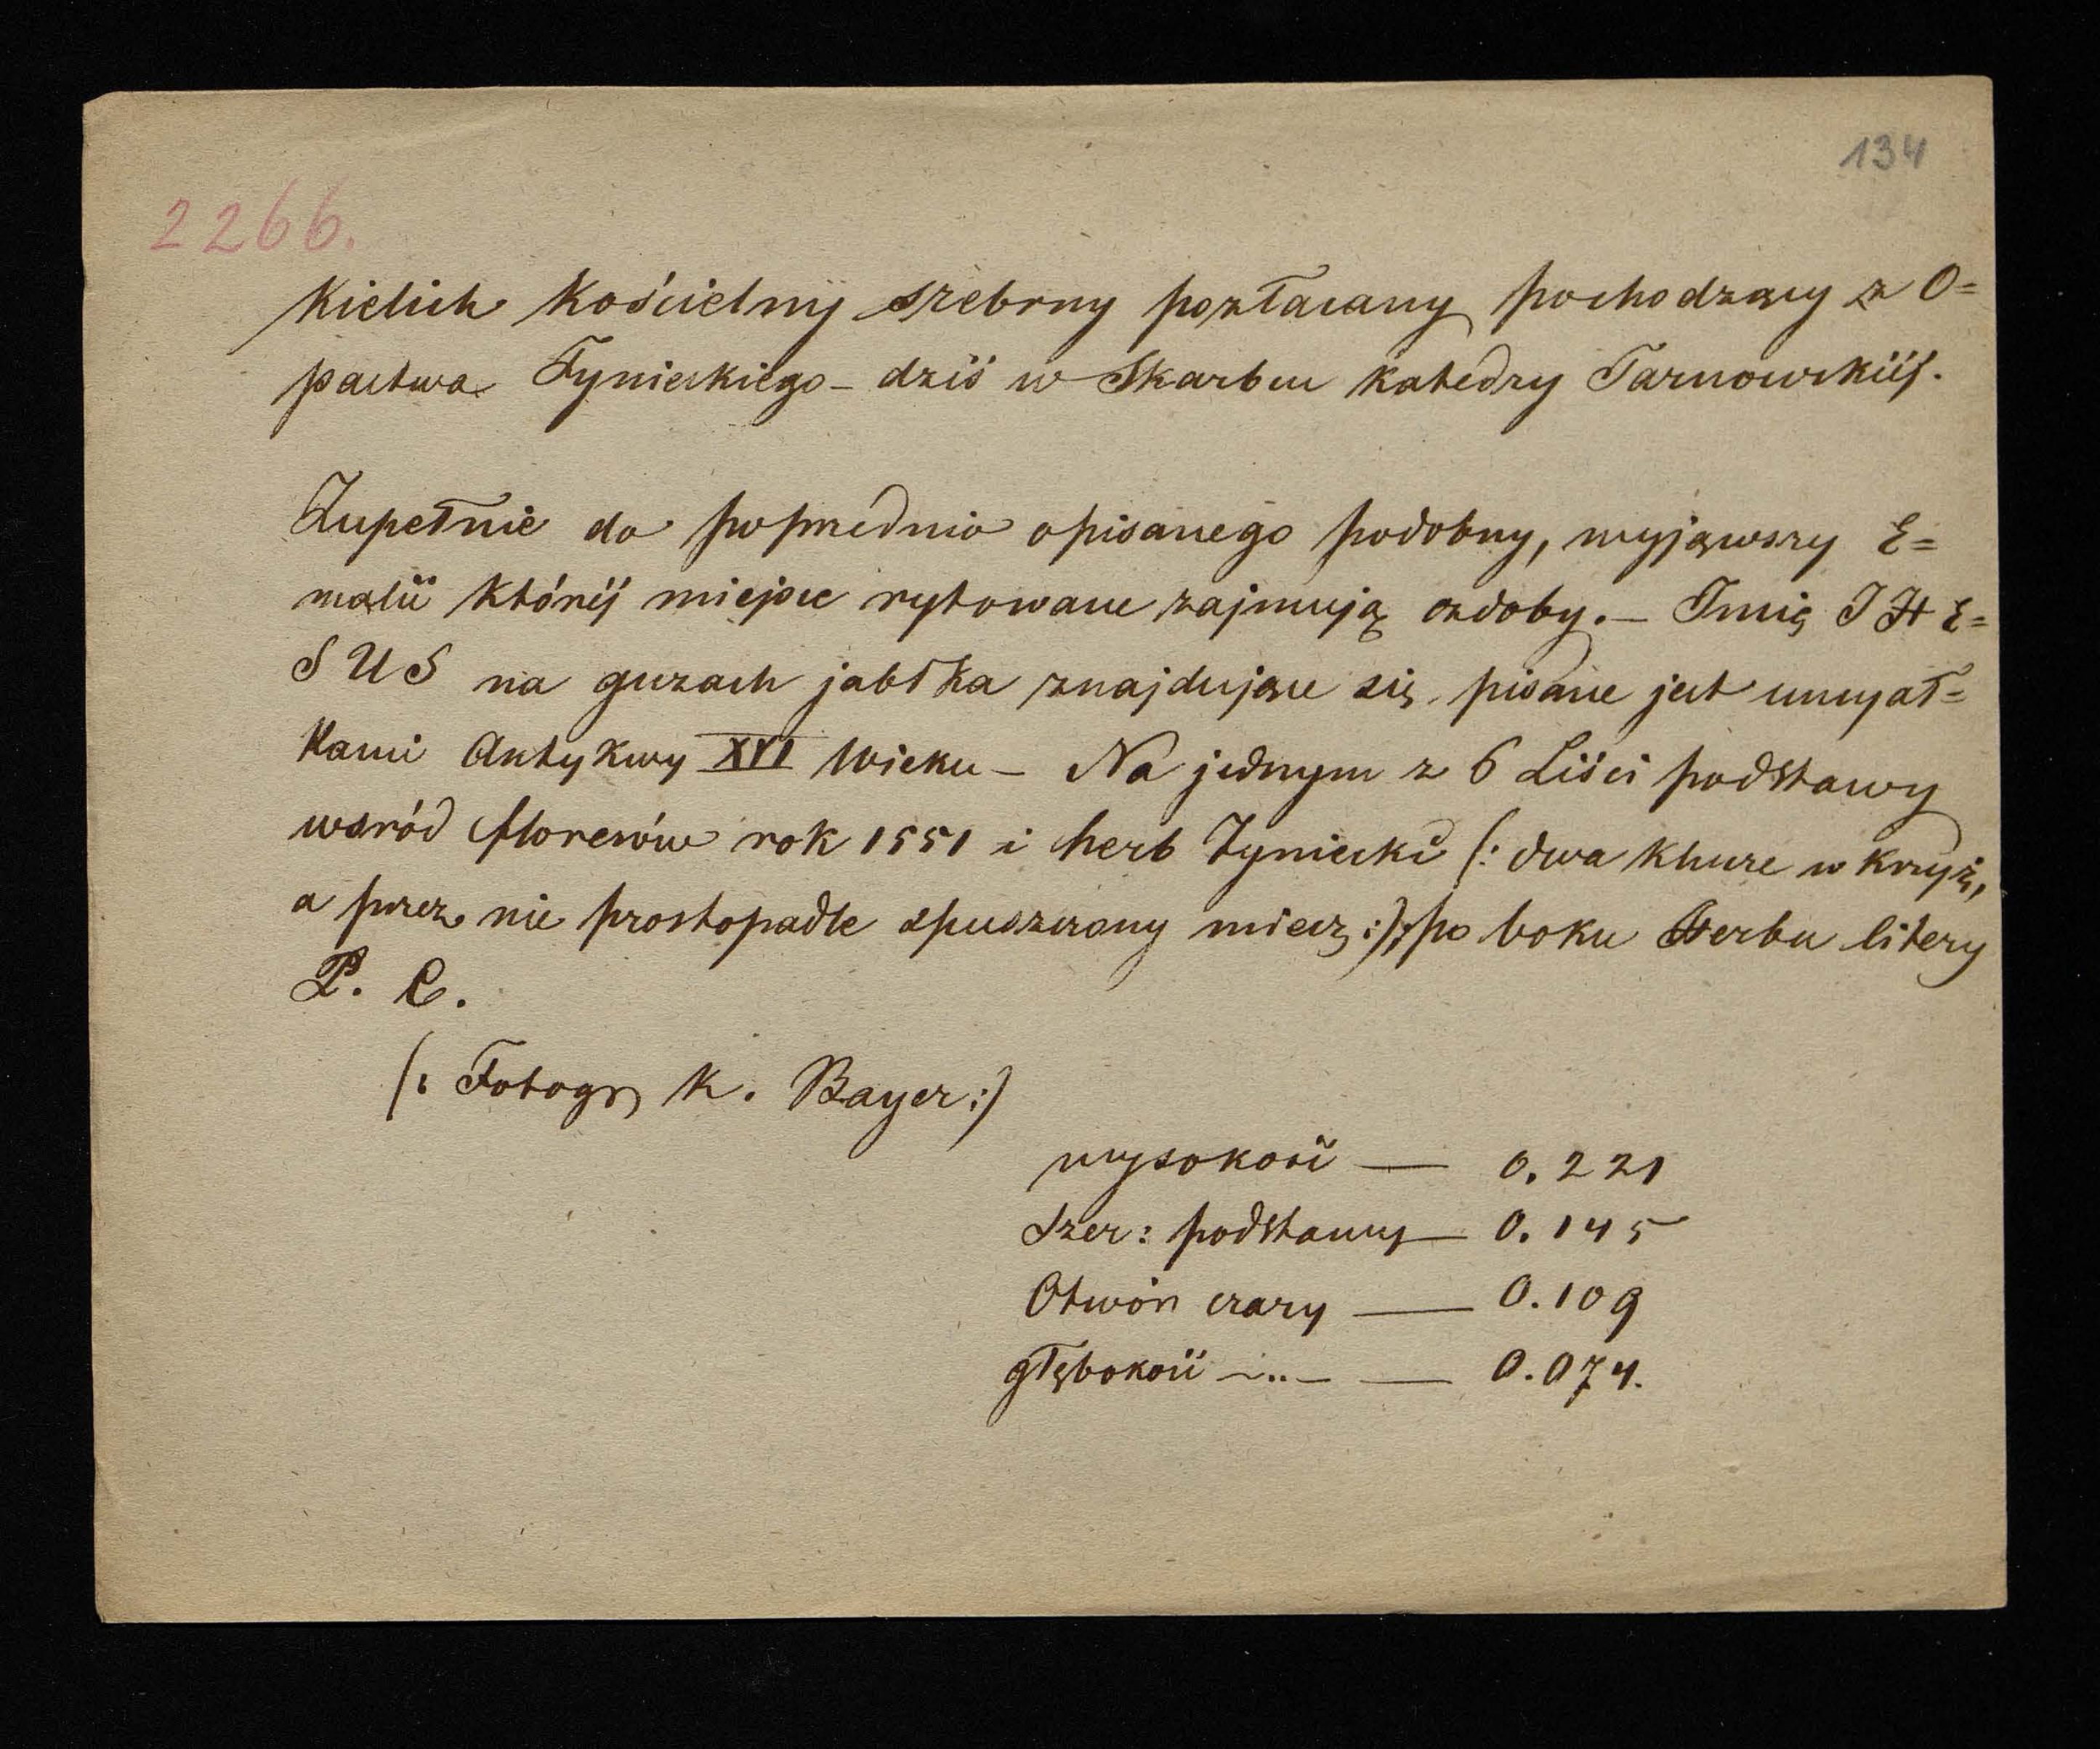 134
2266.
Kielich Kościelny srebrny pozłacany pochodzący z O=
pactwa Tynieckiego – dziś w Skarbcu Katedry Tarnowskiéj.
Zupełnie do poprzednio opisanego podobny, wyjąwszy E=
malii któréj miejsce rytowane zajmują ozdoby. – Imię IHE=
SUS na guzach jabłka znajdujące się pisane jest unciał=
kami Antykwy XVI Wieku – Na jednym z 6 Liści podstawy
wsród floresów rok 1551 i herb Tyniecki (: dwa klucze w krzyż,
a przez nie prostopadle spuszczony miecz :); po boku Herbu litery
P. C.
(: Fotogr K. Bayer :)
wysokość — 0.221
Szer: podstawy — 0.145
Otwór czary — 0.109
głębokość –„– — 0.074.